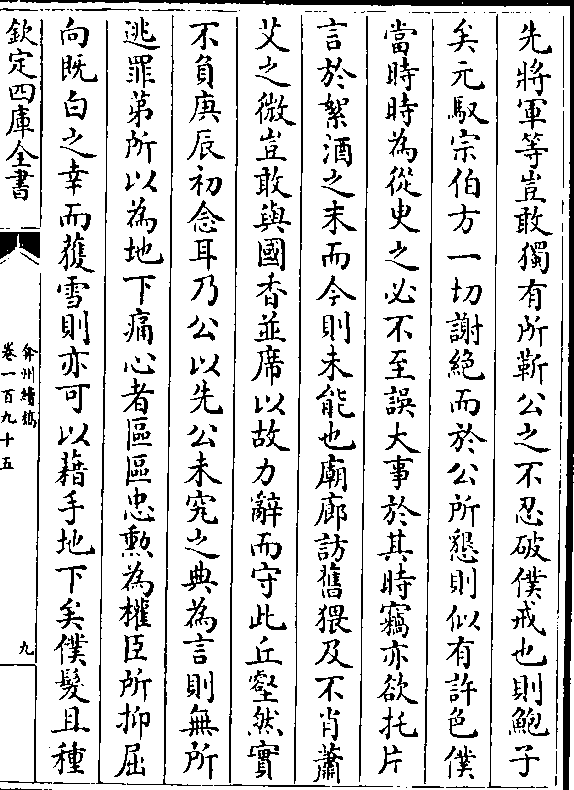 先將軍等豈敢獨有所靳公之不忍破僕戒也則鮑子
矣元馭宗伯方一切謝絕而於公所懇則似有許色僕
當時時為從臾之必不至誤大事於其時竊亦欲托片
言於絮酒之末而今則未能也廟廊訪舊猥及不肖蕭
艾之微豈敢與國香並席以故力辭而守此丘壑然實
不負庚辰初念耳乃公以先公未究之典為言則無所
逃罪弟所以為地下痛心者區區忠勲為權臣所抑屈
向既白之幸而獲雪則亦可以藉手地下矣僕髮且種
欽定四庫全書
弇州續稿
卷一百九十五
九